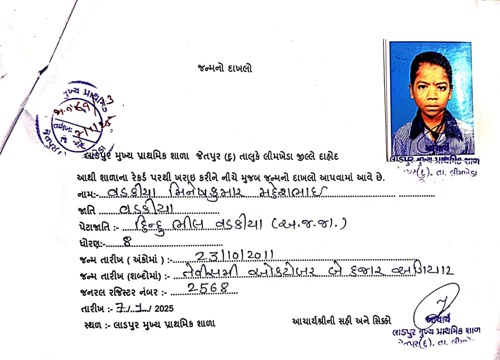 જન્મનો દાખલો
લાડપુર મુખ્ય પ્રાથમિક શાળા જેતપુર (દુ) તાલુકે લીમખેડા જીલ્લે દાહોદ
આથી શાળાના રેકર્ડ પરથી ખરાઇ કરીને નીચે મુજબ જન્મનો દાખલો આપવામાં આવે છે.
નામ:- વડકીયા મિનેષકુમાર મહેશભાઇ
જાતિ વડકીયા
પેટાજાતિ :- હિન્દુ ભીલ વડકીયા (અ.જ.જા.)
ધોરણ:- 8
જન્મ તારીખ ( અંકોમાં ) :- 23/10/2011
જન્મ તારીખ (શબ્દોમાં) :- તેવીસમી ઓક્ટોબર બે હજાર અગિયાર
જનરલ રજિસ્ટર નંબર :- 2568
તારીખ :- 7/1/2025
સ્થળ :- લાડપુર મુખ્ય પ્રાથમિક શાળા
આચાર્યશ્રીની સહી અને સિક્કો
આચાર્ય
લાડપુર મુખ્ય પ્રાથમિક શાળ
જેતપુર(દુ). તા. લીમખે
લાડપુર મુખ્ય પ્રાથમિક શાળ
પુર(દુ). તા. લીમખેડા